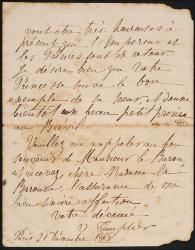 vous êtes très heureuses à
présent que l'Empereur et
les Princes sont de retour.
Je désire bien que votre
Princesse suive le bon
exemple de sa sœur et donne
bientôt un beau petit prince
au Brésil.
Veuillez me rappeler au bon
souvenir de Monsieur le Baron
et recevez, chère Madame la
Baronne, l'assurance de ma
bien sincère affection
votre dévouée
V. Templier
Paris 21 Décembre